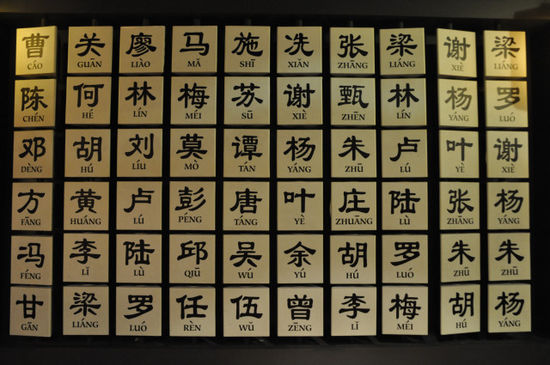 曹 关 廖 马 施 冼 张 梁 谢 梁
CÁO GUĀN LIÀO MǍ SHĪ XIǍN ZHĀNG LIÁNG XIÈ LIÁNG
陈 何 林 梅 苏 谢 甄 林 杨 罗
CHÉN HÉ LÍN MÉI SŪ XIÈ ZHĒN LÍN YÁNG LUÓ
邓 胡 刘 莫 谭 杨 朱 卢 叶 谢
DÈNG HÚ LÍU MÒ TÁN YÁNG ZHŪ LÚ YÈ XIÈ
方 黄 卢 彭 唐 叶 庄 陆 张 杨
FĀNG HUÁNG LÚ PÉNG TÁNG YÈ ZHUĀNG LÙ ZHĀNG YÁNG
冯 李 陆 邱 吴 余 胡 罗 朱 朱
FÉNG LǏ LÙ QIŪ WÚ YÚ HÚ LUÓ ZHŪ ZHŪ
甘 梁 罗 任 伍 曾 李 梅 胡 杨
GĀN LIÁNG LUÓ RÈN WǓ ZĒNG LǏ MÉI HÚ YÁNG